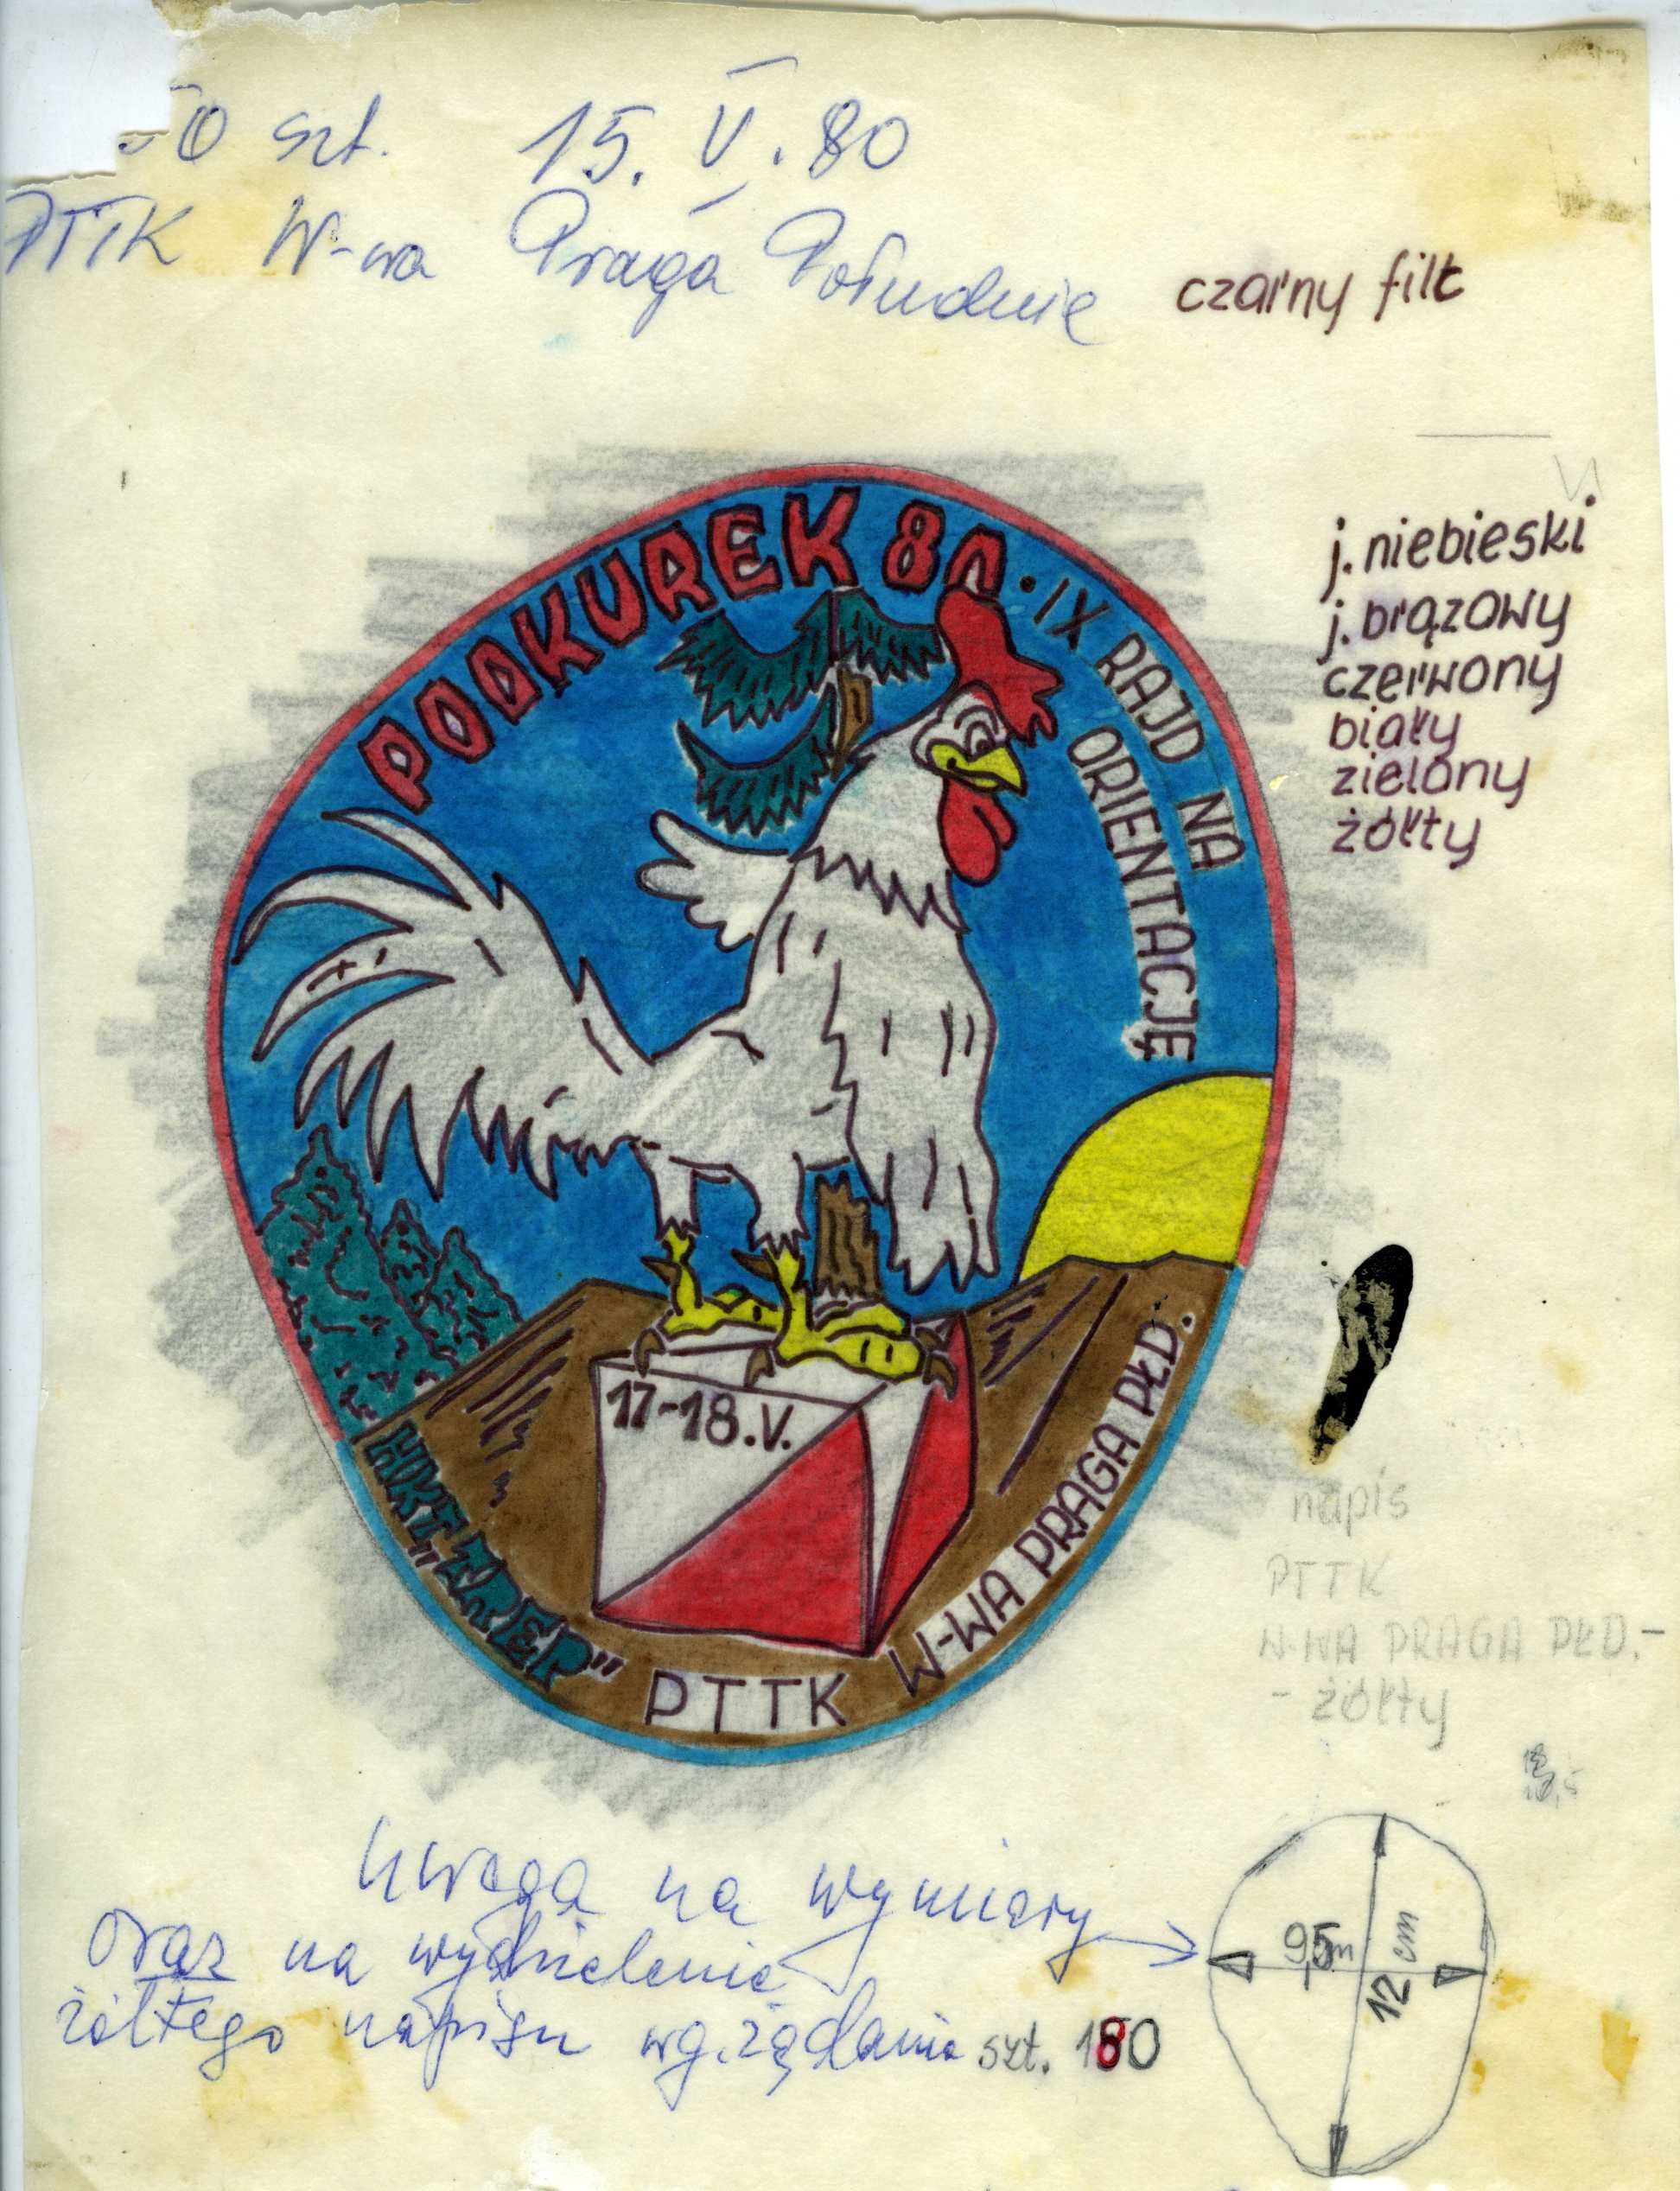 50 szt. 15. V. 80
PTTK W-wa Praga Południe
czarny filc
j. niebieski
j. brązowy
czerwony
biały
zielony
żółty
PODKUREK 80 • IX RAJD NA
ORIENTACJĘ
17-18.V.
HKT "TREP" PTTK W-WA PRAGA PŁD.
napis
PTTK
W-WA PRAGA PŁD. -
- żółty
Uwaga na wymiary
oraz na wydzielenie
żółtego napisu wg. żądania szt. 180
9,5 cm
12 cm